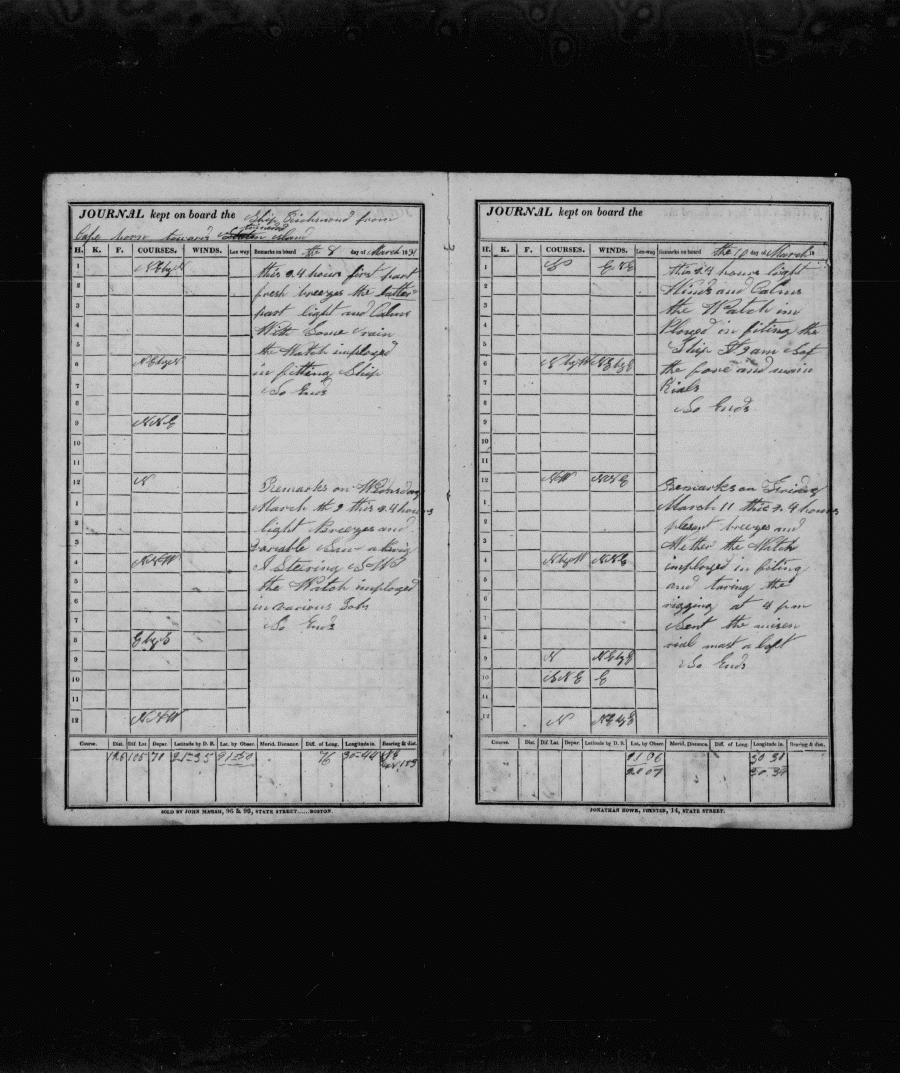 JOURNAL kept on board the Ship Richmond from
Cape horn toward Island
H. K. F. COURSES. WINDS. Lee-way Remarks on board the 8 day of March 1831
1 NEbyN this 24 hours first part
2 fresh breezes the latter
3 part light and Calms
4 With Some rain
5 the Watch imployed
6 NEbyN in fitting Ship
7 So Ends
8
9 NNE
10
11
12 N Remarks on Wensday
1 March th 9 this 24 hours
2 light Breezes and
3 variable Saw a Brig
4 NNW A Steering SW
5 the Watch imployed
6 in various Jobs
7 So Ends
8 EbyE
9
10
11
12 NNW
Course. Dist. Dif. Lat. Depar. Latitude by D. R. Lat. by Obser. Merid. Distance. Diff. of Long. Longitude in. Bearing & dist.
126 105 70 21-35 21-50 76 30-44
SOLD BY JOHN MARSH, 96 & 98, STATE STREET.....BOSTON.
JOURNAL kept on board the
H. K. F. COURSES. WINDS. Lee-way Remarks on board the 10 day of March 18
1 this 24 hours light
2 Winds and Calms
3 the Watch im
4 Ployed in fiting the
5 Ship
6 NbyW NEbyE the fore and main
7 Rials
8 So Ends
9
10
11
12 NW NNE Remarks on Friday
1 March 11 this 24 hours
2 plesent breezes and
3 Wether the Watch
4 NbyW NNE imployed in fiting
5 and taring the
6 rigging at 4 pm
7 Sent the mizen
8 rial mast a loft
9 N NEbyE So Ends
10 NNE E
11
12 N NEbyE
Course. Dist. Dif. Lat. Depar. Latitude by D. R. Lat. by Obser. Merid. Distance. Dif. of Long. Longitude in. Bearing & dist.
21 06 30 31
20 07 30 34
JONATHAN HOWE, PRINTER, 14, STATE STREET.